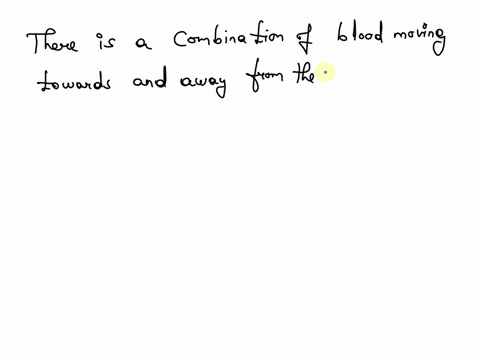 There is a combination of blood moving
towards and away from the